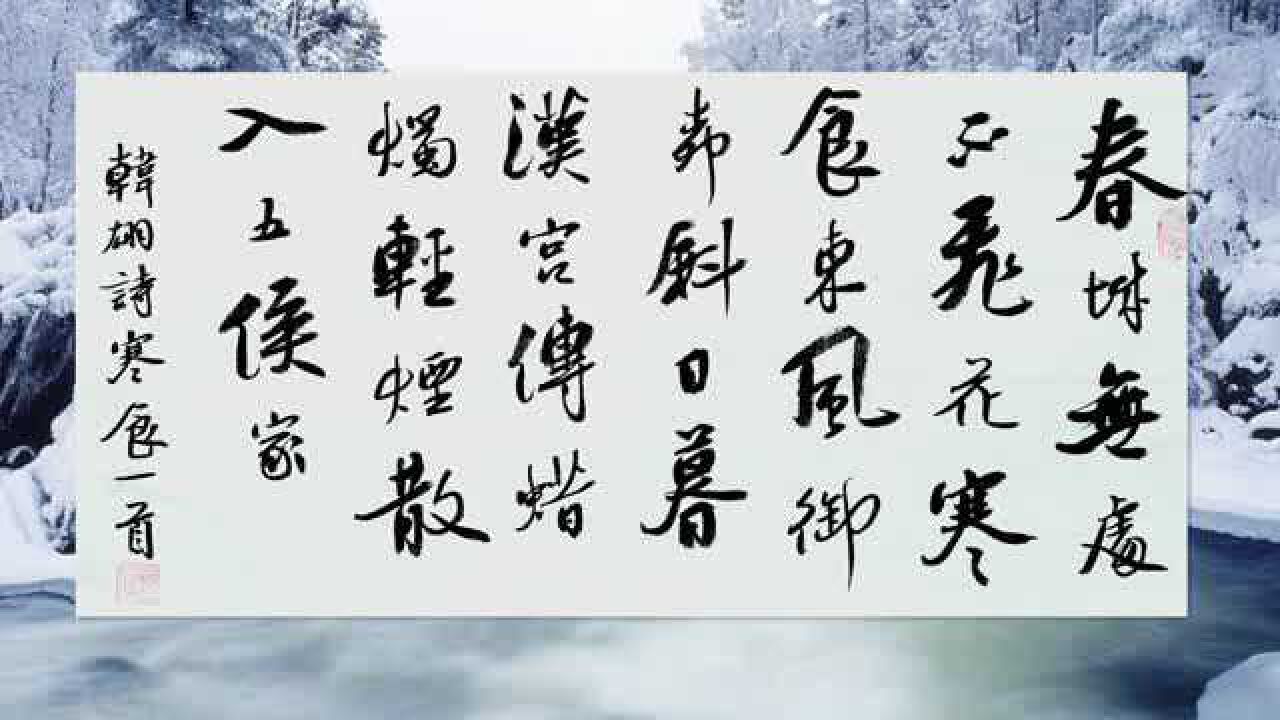 春城無處
不飛花寒
食東風御
柳斜日暮
漢宮傳蜡
燭輕煙散
入五侯家
韓翃詩寒食一首